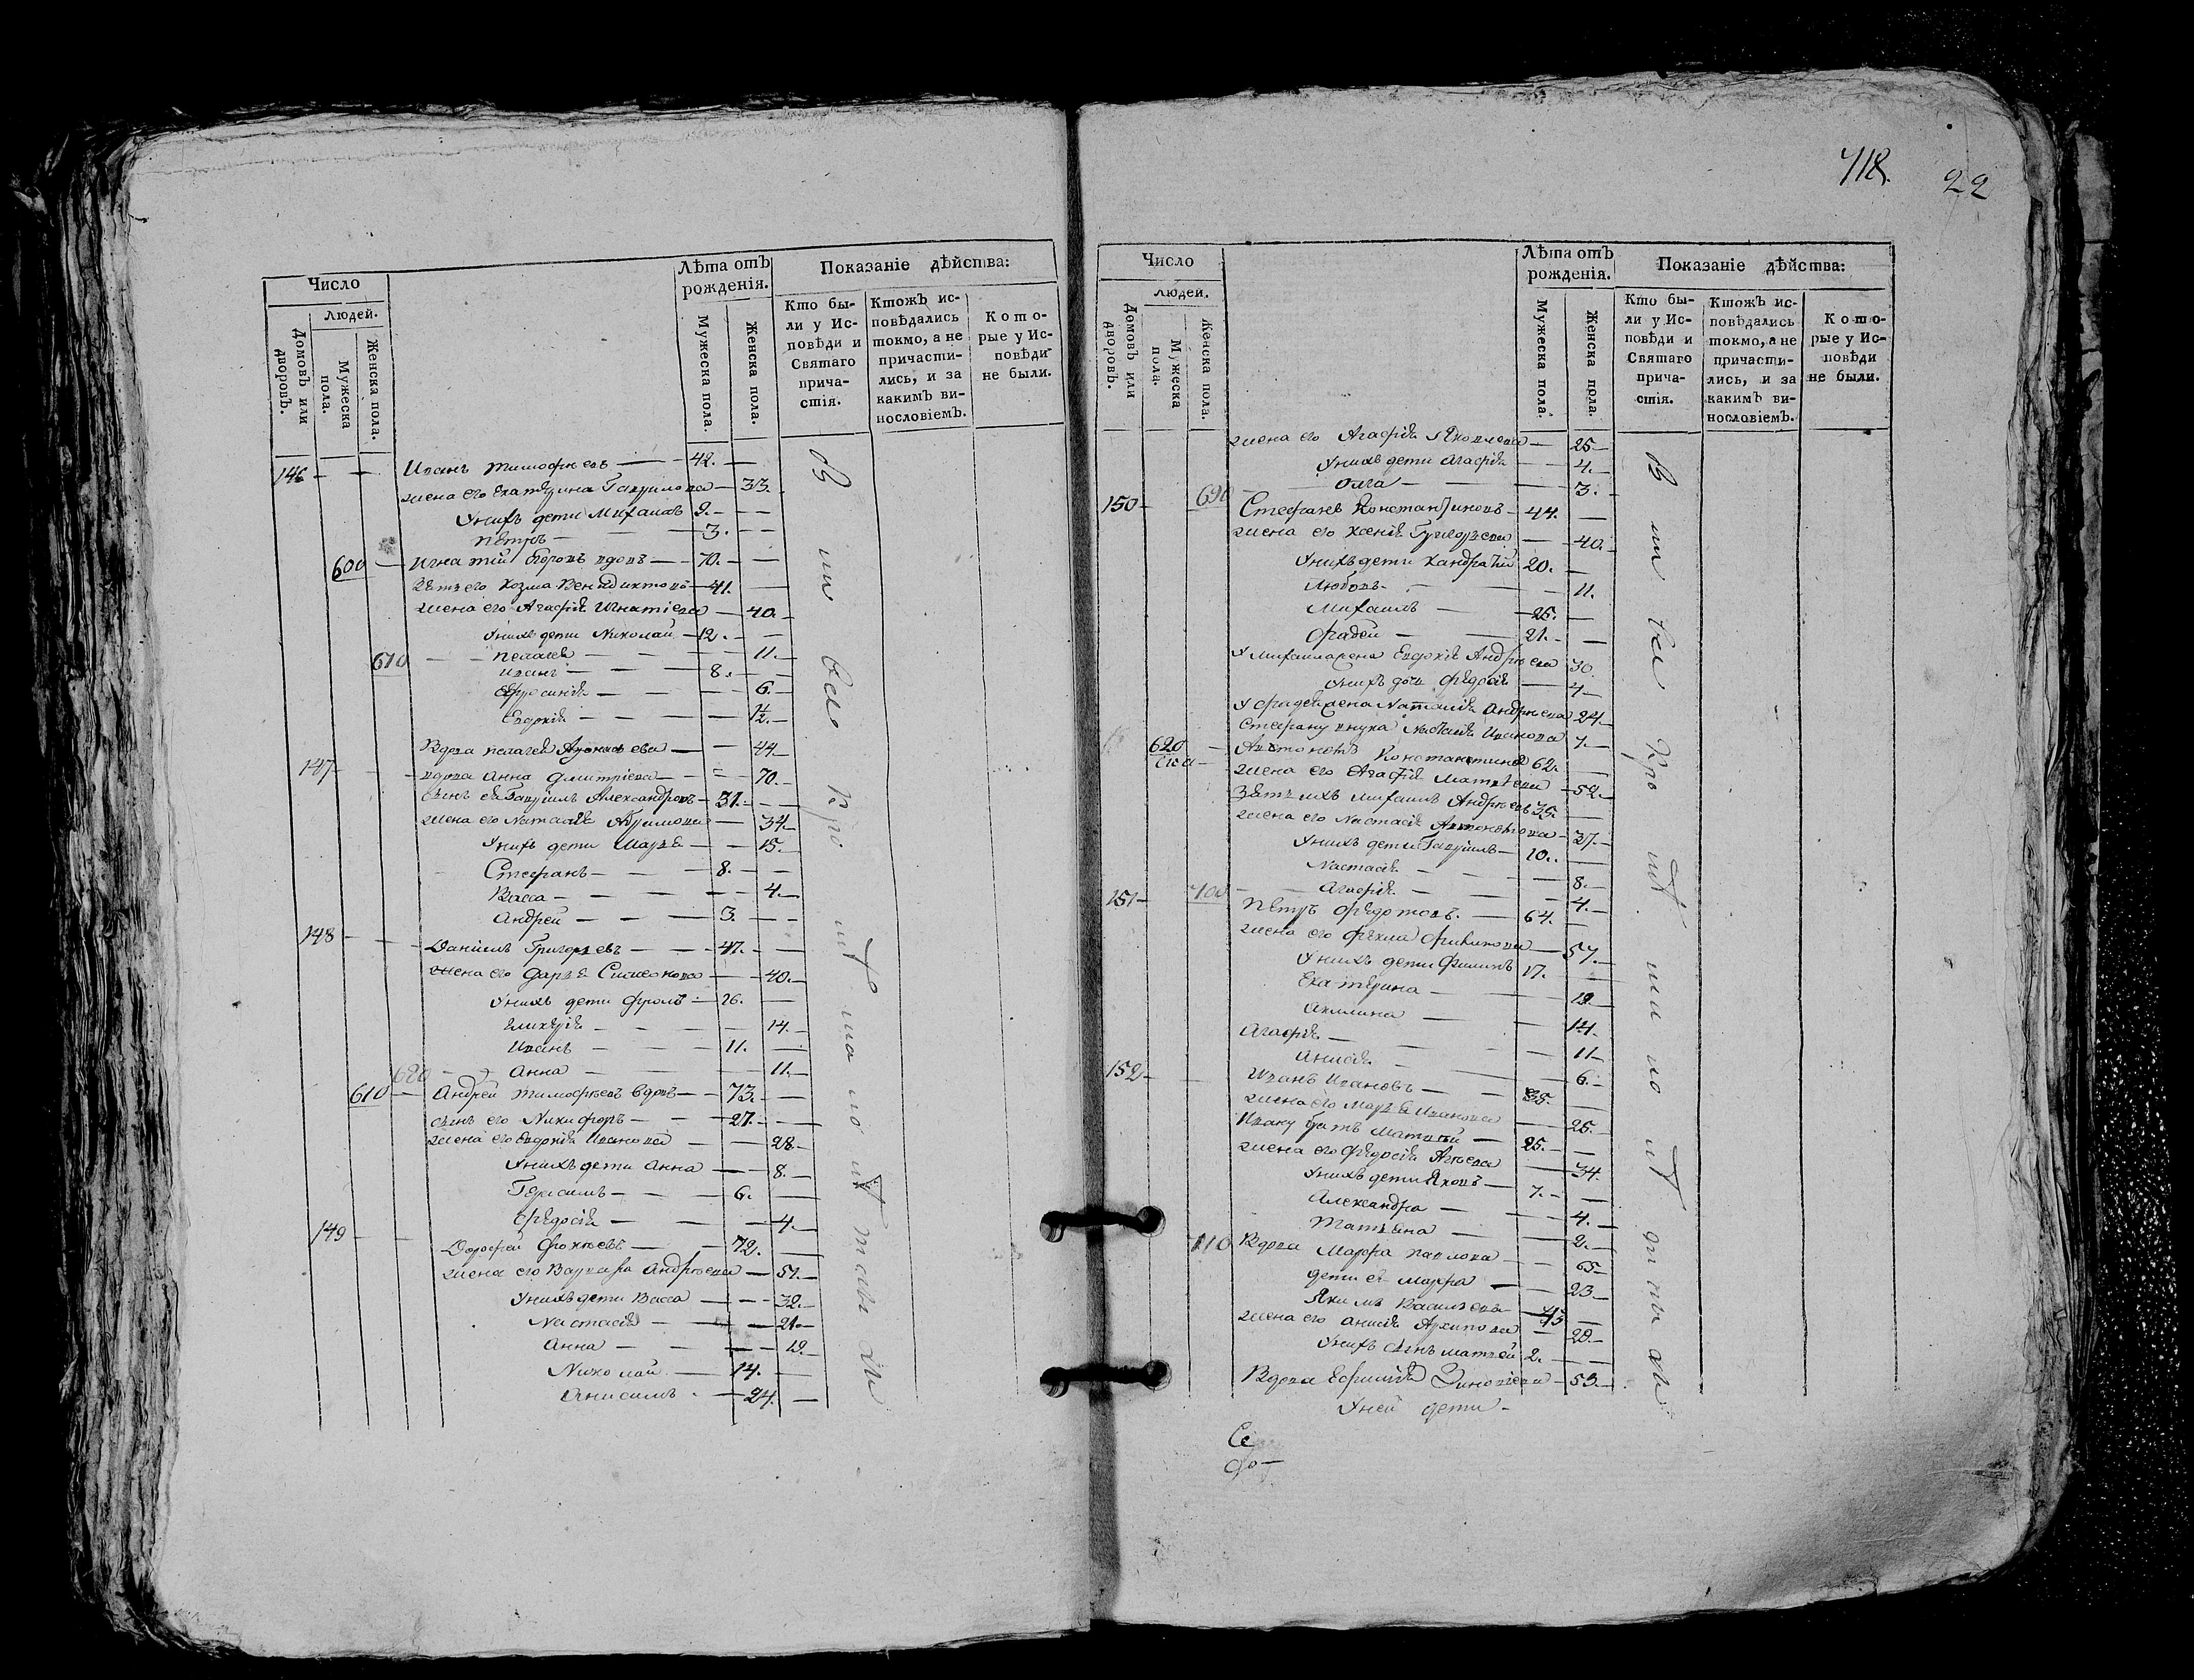 418.
22
Число
Лѣта отъ рожденія.
Показаніе дѣйства:
Людей.
Домовъ или дворовъ.
Мужеска пола.
Женска пола.
Мужеска пола.
Женска пола.
Кто были у Исповѣди и Святаго причастія.
Ктожъ исповѣдались токмо, а не причастились, и за какимъ винословіемъ.
Которые у Исповѣди не были.
146 Иванъ Тимофѣевъ 42.
жена его Екатерина Гаврилова 33.
У нихъ дети Михаилъ 9.
Петръ 3.
600 Игнатий Егоровъ вдовъ 70.
Зять его Козма Венидиктовъ 41.
жена его Агафія Игнатіева 40.
У нихъ дети Николай 12.
Пелагея 11.
670 Иванъ 8.
Ефросинія 6.
Евдокія 1/2.
Вдова Пелагея 44
147 вдова Анна Дмитріева 70.
сынъ ея Гавріилъ Александровъ 31.
жена его Наталія 34
У нихъ дети Марья 15.
Стефанъ 8.
Васса 4.
Андрей 3.
148 Даніилъ Григорьевъ 47.
жена его Дарья Симеонова 40.
У нихъ дети Фролъ 26.
Гликерія 14.
Иванъ 11.
680 Анна 11.
610 Андрей Тимофѣевъ вдовъ 73.
сынъ его Никифоръ 27.
жена его Евдокія Иванова 28
У нихъ дети Анна 8.
Герасимъ 6.
Федосія 4.
149 Дорофей 72.
жена его Варвара Андрѣева 51.
У нихъ дети Васса 32.
Настасія 21.
Анна 19.
Николай 14.
Анисимъ 24.
Число
Лѣта отъ рожденія.
Показаніе дѣйства:
Людей.
Домовъ или дворовъ.
Мужеска пола.
Женска пола.
Мужеска пола.
Женска пола.
Кто были у Исповѣди и Святаго причастія.
Ктожъ исповѣдались токмо, а не причастились, и за какимъ винословіемъ.
Которые у Исповѣди не были.
жена его Агафія Яковлева 25
У нихъ дети Агафія 4.
690 Олга 3.
150 Стефанъ Константиновъ 44.
жена его Ксенія Григорьева 40.
У нихъ дети Кандратій 20.
Любовь 11.
Михаилъ 25.
Фадей 21.
У Михаила жена Евдокія Андрѣева 30
У нихъ дочь Федосія 4
У Фадея жена Наталія Андрѣева 24.
Стефану внука Настасія Иванова 7.
620 Константиновъ 62.
жена его Агафія Матвѣева 52.
Зять ихъ Михаилъ Андрѣевъ 35.
жена его Настасія 37.
У нихъ дети Гавріилъ 10.
Настасія 8.
700 Агафія 4.
151 Петръ Федотовъ 64.
жена его Фекла 57.
У нихъ дети Филипъ 17.
Екатерина 19.
Акилина 14.
Агафія 11
Анисія 6.
152 Иванъ Ивановъ 35.
жена его Марья Иванова 25.
Ивану братъ Матвѣй 25.
жена его Федосія 34.
У нихъ дети Яковъ 7.
Александра 4.
Татьяна 2.
710 Вдова Марфа Павлова 65
дети ея Марфа 23.
Якимъ Васильевъ 45
жена его Анисія Архипова 29.
У нихъ сынъ Матвѣй 2.
Вдова Ефимія Зиновіева 53.
У ней дети